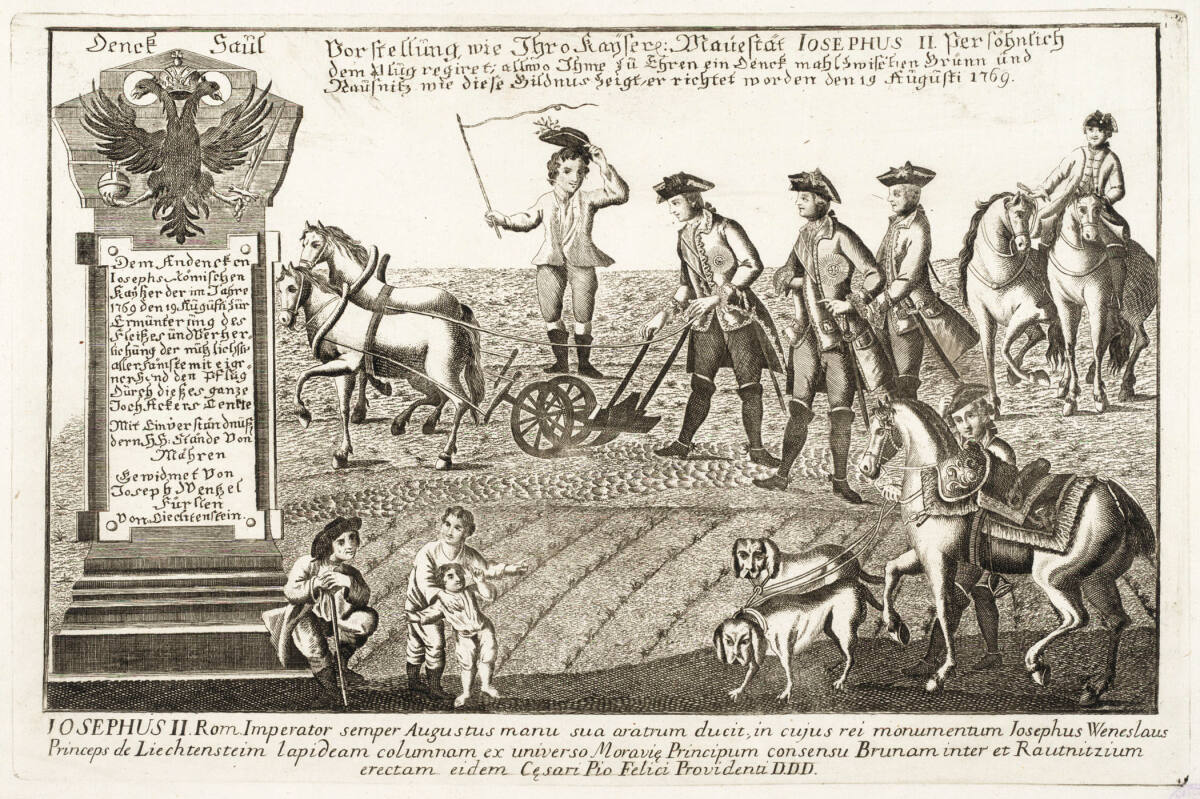 Denck Saül
Vorstellüng wie Ihro KaÿserE: Maÿestät IOSEPHUS II. Persöhnlich
dem Plüg regiret; allwo Ihme zü Ehren ein Denck mahl zwischen Brünn und
Raüsnitz wie diese Bildnus zeigt, er richtet worden den 19 Aügüsti 1769.
Dem Andencken
Iosephs Römischen
Kaÿßer der im Jahre
1769 den 19 Aügüsti zür
Ermünterüng des
Fleißes ünd Verherr
lichüng der nützlichste
aller Künste mit eige
ner Hand den Pflüg
Dürch dießes ganze
Joch Ackers Lenkte
Mit Einverständnüß
dern HH: Stände Von
Mähren
Gewidmet Von
Joseph Wentzel
Fürsten
Von Liechtenstein.
IOSEPHUS II. Rom. Imperator semper Augustus manu sua aratrum ducit, in cujus rei monumentum Iosephus Weneslaus
Princeps de Liechtensteim lapideam columnam ex universo Moravię Principum consensu Brunam inter et Rautnitzium
erectam eidem Cęsari Pio Felici Providenti D.D.D.